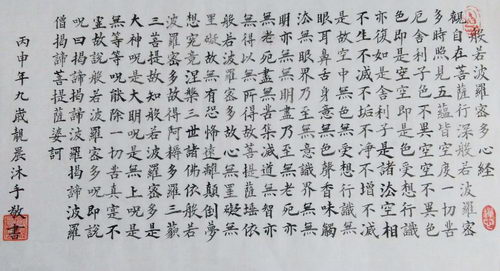 般若波羅密多心經
觀自在菩薩行深般若波羅密
多時照見五蘊皆空度一切苦
厄舍利子色不異空空不異色
色即是空空即是色受想行識
亦復如是舍利子是諸法空相
不生不滅不垢不淨不增不減
是故空中無色無受想行識無
眼耳鼻舌身意無色聲香味觸
法無眼界乃至無意識界無無
明亦無無明盡乃至無老死亦
無老死盡無苦集滅道無智亦
無得以無所得故菩提薩埵依
般若波羅密多故心無罣礙無
罣礙故無有恐怖遠離顛倒夢
想究竟涅槃三世諸佛依般若
波羅密多故得阿耨多羅三藐
三菩提故知般若波羅密多是
大神呪是大明呪是無上呪是
無等等呪能除一切苦真實不
虛故說般若波羅密多呪即說
呪曰揭諦揭諦波羅揭諦波羅
僧揭諦菩提薩婆訶
丙申年九歲龍晨沐手敬書